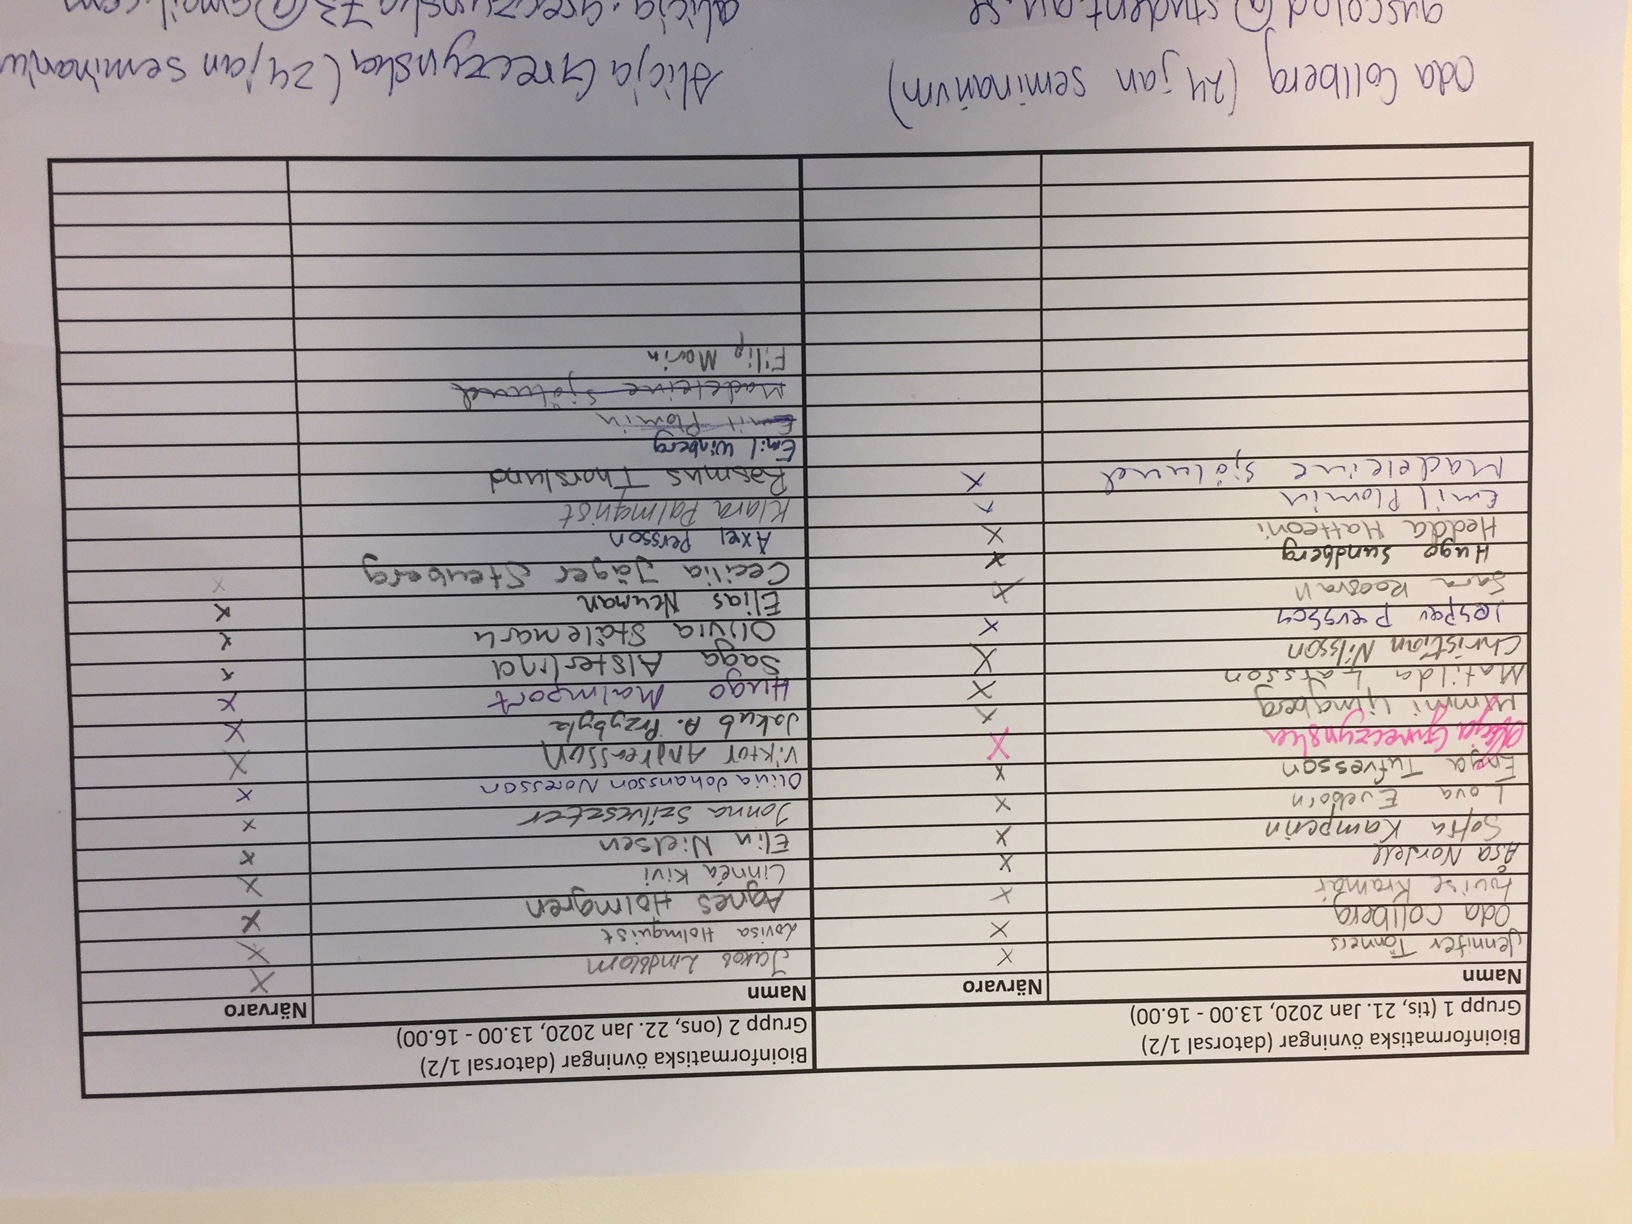 Bioinformatiska övningar (datorsal 1/2)
Grupp 1 (tis, 21. Jan 2020, 13.00 - 16.00)
Namn Närvaro
Jennifer Tönners X
Oda Collberg X
Louise Kramár X
Åsa Nordell X
Sofia Kamperin X
Lova Eveborn X
Enya Tufvesson X
Alicja Gureczynska X
Mimmi Lilmaberg X
Matilda Larsson X
Christian Nilsson X
Jesper Persson X
Sara X
Hugo Sundberg X
Hedda Matteoni X
Emil Plomin
Madeleine Sjölund X
Bioinformatiska övningar (datorsal 1/2)
Grupp 2 (ons, 22. Jan 2020, 13.00 - 16.00)
Namn Närvaro
Jakob Lindblom X
Lovisa Holmquist X
Agnes Holmgren X
Linnéa Kivi X
Elin Nielsen X
Janna Szilveszter X
Olivia Johansson Noresson X
Viktor Andreasson X
Jakub A. Przybyla X
Hugo Malmport X
Saga Alsterlind X
Olivia Stålemark X
Elias Neuman X
Cecilia Jäger Stenberg X
Axel Persson
Klara Palmqvist
Rasmus Thorslund
Emil Winberg
Emil Plomin
Madeleine Sjölund
Filip Marin
Oda Collberg (24 jan seminarium)
@student.gu.se
Alicja Greczynska (24 jan seminarium
alicja.greczynska73@gmail.com